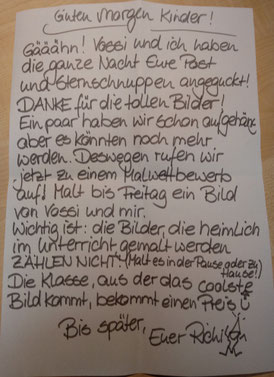 Guten Morgen Kinder!
Gääähn! Vossi und ich haben
die ganze Nacht Eure Post
und Sternschnuppen angeguckt!
DANKE für die tollen Bilder!
Ein paar haben wir schon aufgehängt
aber es könnten noch mehr
werden. Deswegen rufen wir
jetzt zu einem Malwettbewerb
auf! Malt bis Freitag ein Bild
von Vossi und mir.
Wichtig ist: die Bilder, die heimlich
im Unterricht gemalt werden
ZÄHLEN NICHT! (Malt es in der Pause oder zu
Hause!)
Die Klasse, aus der das coolste
Bild kommt, bekommt einen Preis
Bis später,
Euer Richi